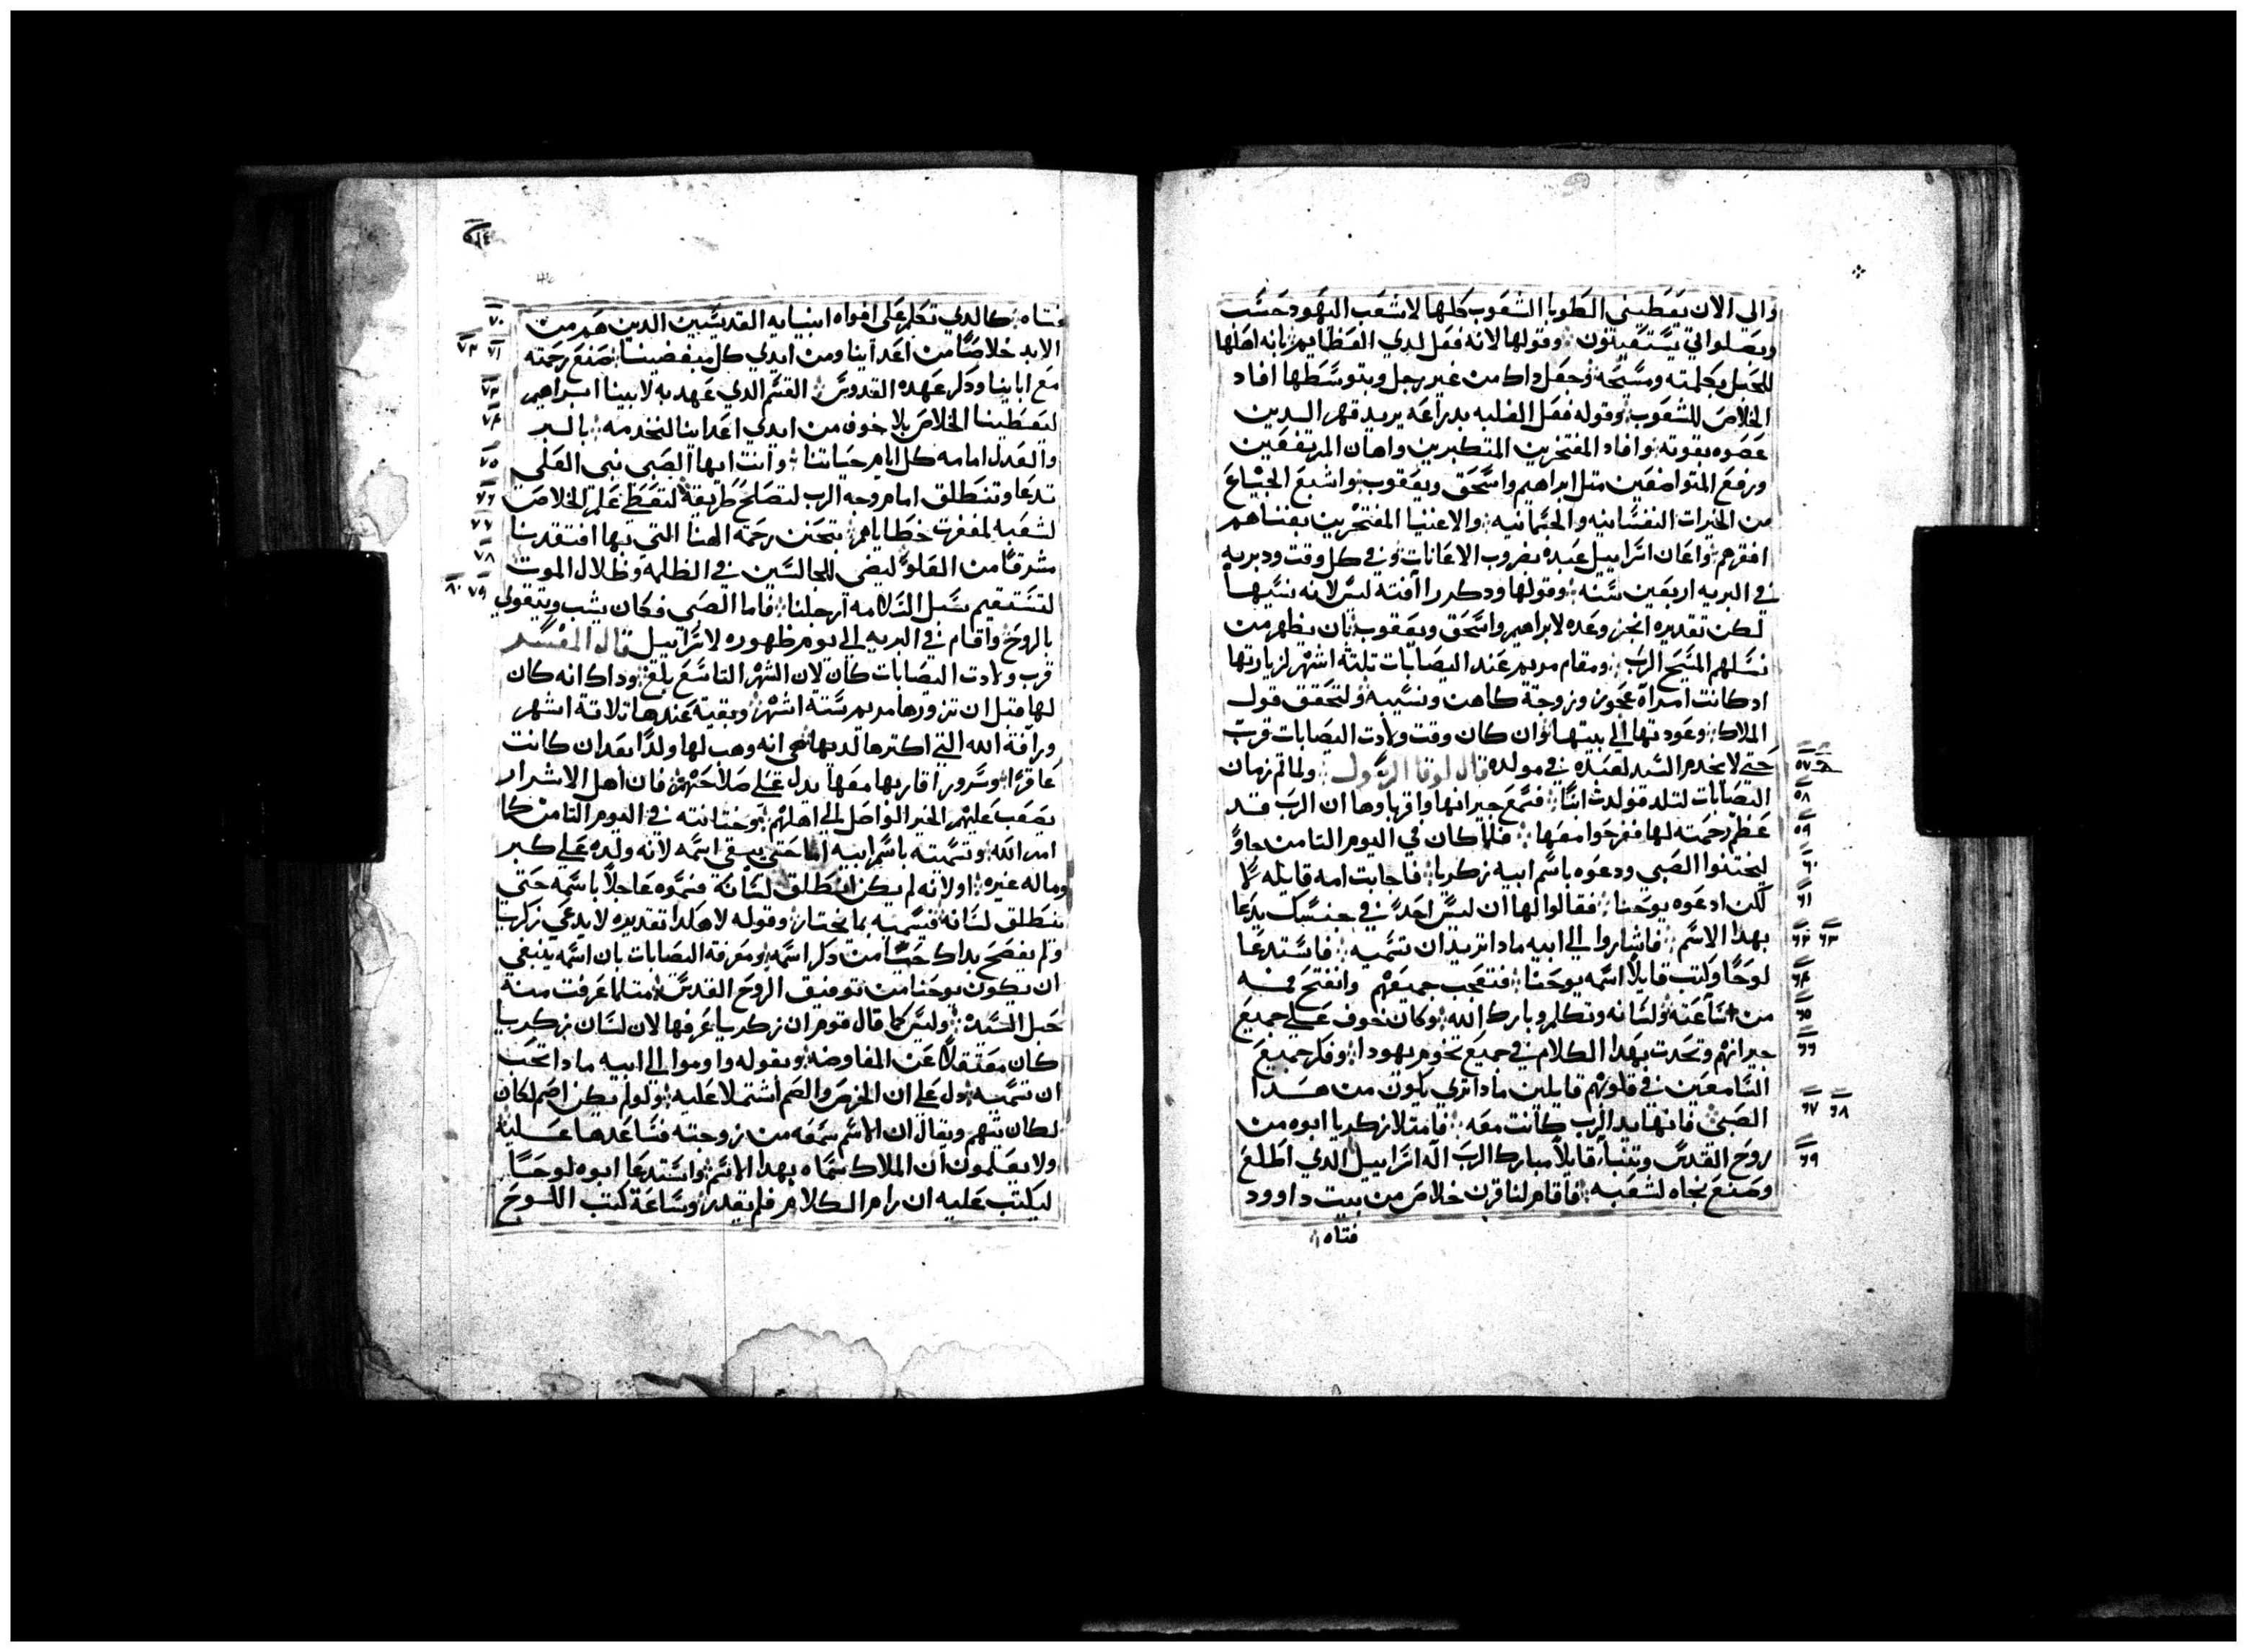 والي الان يعطيني الطوبا الشعوب كلها لا شعب اليهود حسب
وبصلواتي يستغيثون وقولها لانه فعل لدي العظايم بانه اهلها
للحبل بكلمته ومسيحه وحعل داك من غير رجل وبتوسطها افاد
الخلاص للشعوب وقوله فعل الغلبه بدراعه يريد قهر الدين
عصوه بقوته وافاد المفتخرين المتكبرين واهان المرتفعين
ورفع المتواضعين متل ابراهيم واسحق ويعقوب واشبع الجياع
من الخيرات النفسانيه والجسمانيه والاغنيا المفتخرين بغناهم
افقرهم واعان اسراييل عبده بضروب الاعانات وفي كل وقت ودبربه
في البريه اربعين سنه وقولها ودكر راافته ليس لانه نسيها
لكن تقديره انجز وعده لابراهيم واسحق ويعقوب بان يظهر من
نسلهم المسيح الرب ومقام مريم عند اليصابات تلته اشهر لزيارتها
ادكانت امراه عجوز وزوجة كاهن ونسيبه ولتحقق قول
الملاك وعودتها الي بيتها وان كان وقت ولادت اليصابات قرب
حتي لا يخدم السيد لعبده في مولده قال لوقا الرسول ولما تم زمان
اليصابات لتلد فولدت ابنا فسمع جيرانها واقرباوها ان الرب قد
عظم رحمته لها ففرحوا معها فلما كان في اليوم التامن جاوا
ليختنوا الصبي ودعوه باسم ابيه زكريا فاجابت امه قايله لا
لكن ادعوه يوحنا فقالوا لها ان ليس احد في جنسك يدعا
بهدا الاسم فاشاروا الي ابيه مادا تريد ان تسميه فاستدعا
لوحا وكتب قايلا اسمه يوحنا فتعجب جميعهم وانفتح فمه
من ساعته ولسانه وتكلم وبارك الله وكان خوف علي جميع
جيرانهم وتحدت بهدا الكلام في جميع تخوم يهودا وفكر جميع
السامعين في قلوبهم قايلين مادا تري يكون من هدا
الصبي فانها يد الرب كانت معه فامتلا زكريا ابوه من
روح القدس وتنبا قايلا مبارك الرب اله اسراييل الدي اطلع
وصنع نجاه لشعبه فاقام لنا قرن خلاص من بيت داوود
فتاه
٥٧
٥٨
٥٩
٦٠
٦١
٦٢ ٦٣
٦٤
٦٥
٦٦
٦٧ ٦٨
٦٩
فتاه كالدي تكلم علي افواه انبيايه القديسين الدين هم من
الابد خلاصا من اعداينا ومن ايدي كل مبغضينا صنع رحمته
مع اباينا ودكر عهده القدوس القسم الدي عهد به لابينا ابراهيم
ليعطينا الخلاص بلا خوف من ايدي اعداينا لنخدمه بالبر
والعدل امامه كل ايام حياتنا وانت ايها الصبي نبي العلي
تدعا وتنطلق امام وجه الرب لتصلح طريقه لتعطي علم الخلاص
لشعبه لمغفرت خطاياهم بتحنن رحمة الهنا التي بها افتقدنا
مشرقا من العلو ليضي للجالسين في الظلمه وظلال الموت
لتستقيم سبل السلامه ارجلنا فاما الصبي فكان يشب ويتقوي
بالروح واقام في البريه الي يوم ظهوره لاسراييل قال المفسر
قرب ولادت اليصابات كان لان الشهر التاسع بلغ وداك انه كان
لها قبل ان تزورها مريم ستة اشهر وبقية عندها تلاتة اشهر
ورافة الله التي اكترها لديها هي انه وهب لها ولدا بعد ان كانت
عاقرا وسرور اقاربها معها يدل علي صلاحتهم فان اهل الاشرار
يصعب عليهم الخير الواصل الي اهلهم وختانته في اليوم التامن كما
امر الله وتسميته باسم ابيه اما حتي يبقي اسمه لانه ولده علي كبر
وماله غيره اولانه لم يكن انطلق لسانه فسموه عاجلا باسمه حتي
ينطلق لسانه فيسميه بما يختار وقوله لا هكدا تقديره لا يدعي زكريا
ولم يفصح بداك حبا من دكر اسمه ومعرفة اليصابات بان اسمه ينبغي
ان يكون يوحنا من توفيق الروح القدس متلما عرفت منه
حبل السيده وليس كما قال قوم ان زكريا عرفها لان لسان زكريا
كان معتقلا عن المفاوضه وبقوله واوموا الي ابيه مادا تحب
ان تسميه دل علي ان الخرص والصم اشتملا عليه ولو لم يكن اصم لكان
لكان يتهم ويقال ان الاسم سمعه من زوجته فساعدها عليه
ولا يعلمون ان الملاك سماه بهدا الاسم واستدعا ابوه لوحا
ليكتب عليه ان رام الكلام فلم يقدر وساعة كتب اللوح
٧٠
٧١ ٧٢
٧٣
٧٤
٧٥
٧٦
٧٧
٧٨
٧٩ ٨٠